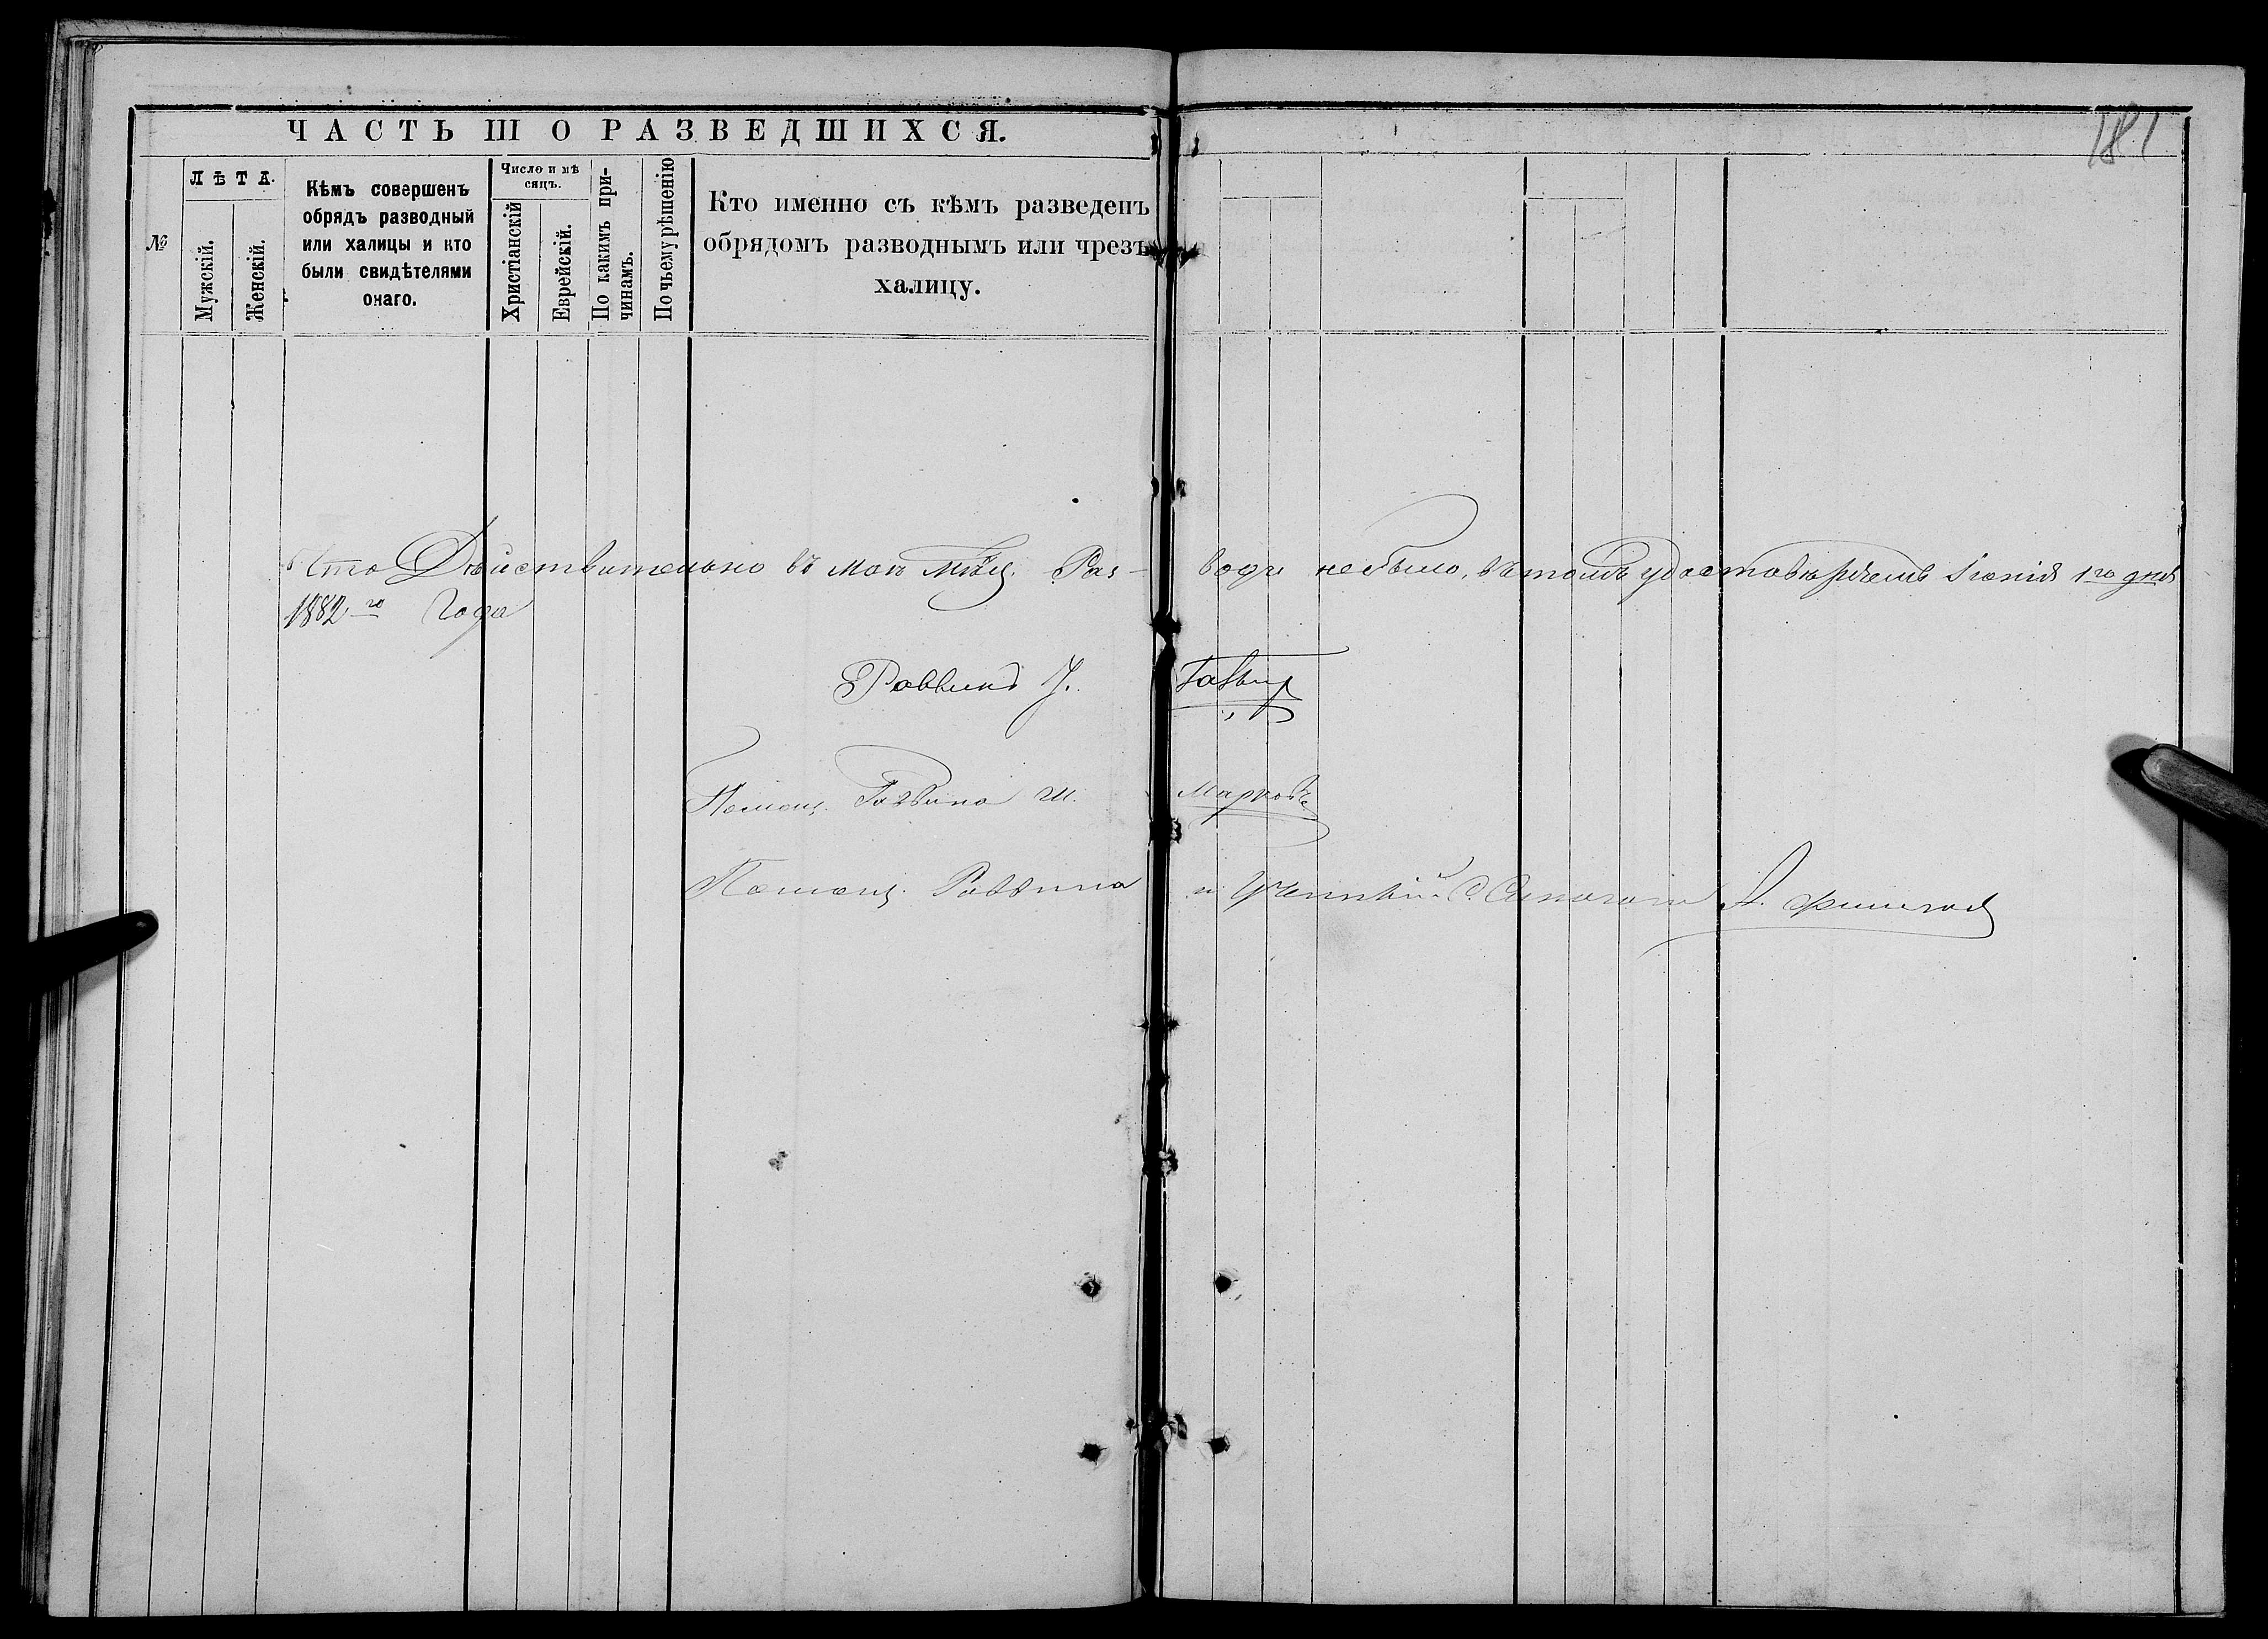 ЧАСТЬ III О РАЗВЕДШИХСЯ.
181
№
ЛѢТА.
Мужскій.
Женскій.
Кѣмъ совершенъ
обрядъ разводный
или халицы и кто
были свидѣтелями
онаго.
Число и мѣ
сяцъ.
Христіанскій
Еврейскій.
По какимъ при-
чинамъ.
По чьему рѣшенію
Кто именно съ кѣмъ разведенъ
обрядомъ разводнымъ или чрезъ
халицу.
Что Дѣйствительно въ маѣ мѣсц. Раз- водъ небыло, въ томъ удостовѣряемъ Іюнія 1го дня
1882го Года
Раввинъ
Помощ. Раввина М. Марковъ
Помощ. Раввина и Ученый С. Синагоги